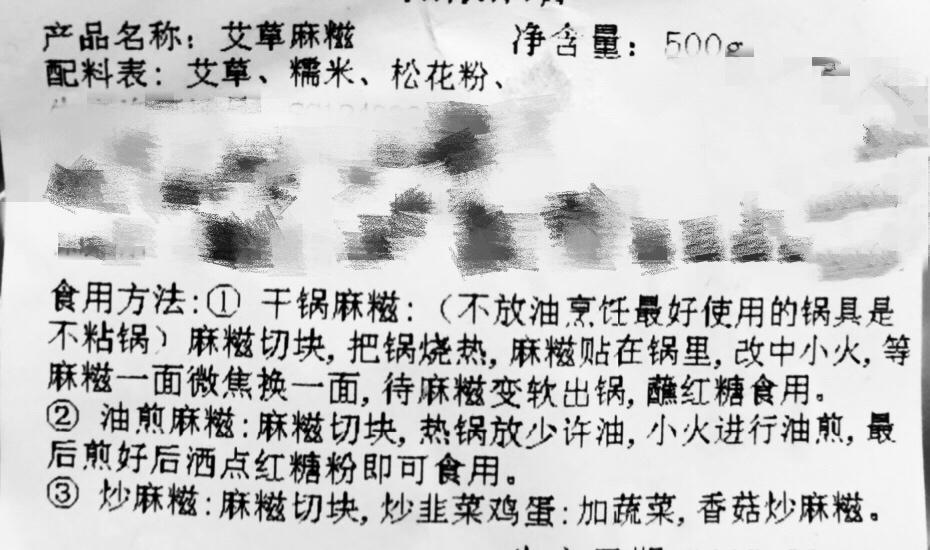 产品名称：艾草麻糍 净含量：500g
配料表：艾草、糯米、松花粉、
食用方法：① 干锅麻糍：（不放油烹饪最好使用的锅具是
不粘锅）麻糍切块，把锅烧热，麻糍贴在锅里，改中小火，等
麻糍一面微焦换一面，待麻糍变软出锅，蘸红糖食用。
② 油煎麻糍：麻糍切块，热锅放少许油，小火进行油煎，最
后煎好后洒点红糖粉即可食用。
③ 炒麻糍：麻糍切块，炒韭菜鸡蛋：加蔬菜，香菇炒麻糍。